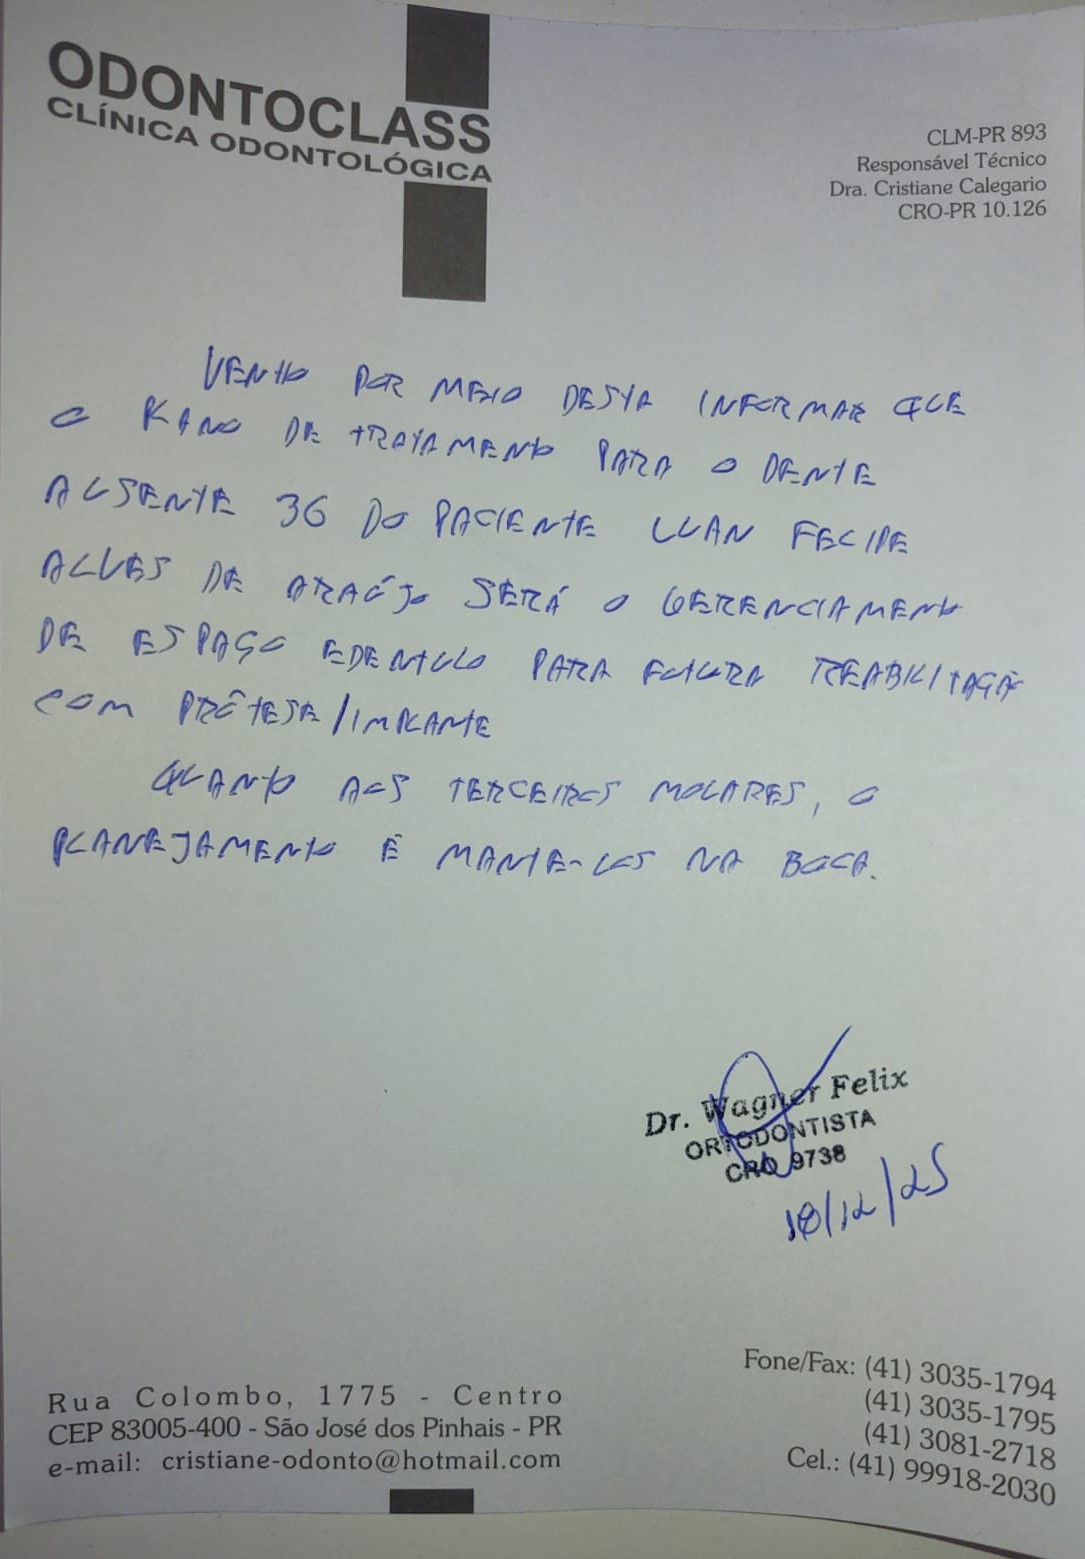 ODONTOCLASS
CLÍNICA ODONTOLÓGICA
CLM-PR 893
Responsável Técnico
Dra. Cristiane Calegario
CRO-PR 10.126
VENHO POR MEIO DESTA INFORMAR QUE
O PLANO DE TRATAMENTO PARA O DENTE
AUSENTE 36 DO PACIENTE LUAN FELIPE
ALVES DE ARAÚJO SERÁ O GERENCIAMENTO
DE ESPAÇO EDENTULO PARA FUTURA REABILITAÇÃO
COM PRÓTESE/IMPLANTE
QUANTO AOS TERCEIROS MOLARES, O
PLANEJAMENTO É MANTE-LOS NA BOCA.
Dr. Wagner Felix
ORTODONTISTA
CRO 9738
18/12/25
Rua Colombo, 1775 - Centro
CEP 83005-400 - São José dos Pinhais - PR
e-mail: cristiane-odonto@hotmail.com
Fone/Fax: (41) 3035-1794
(41) 3035-1795
(41) 3081-2718
Cel.: (41) 99918-2030